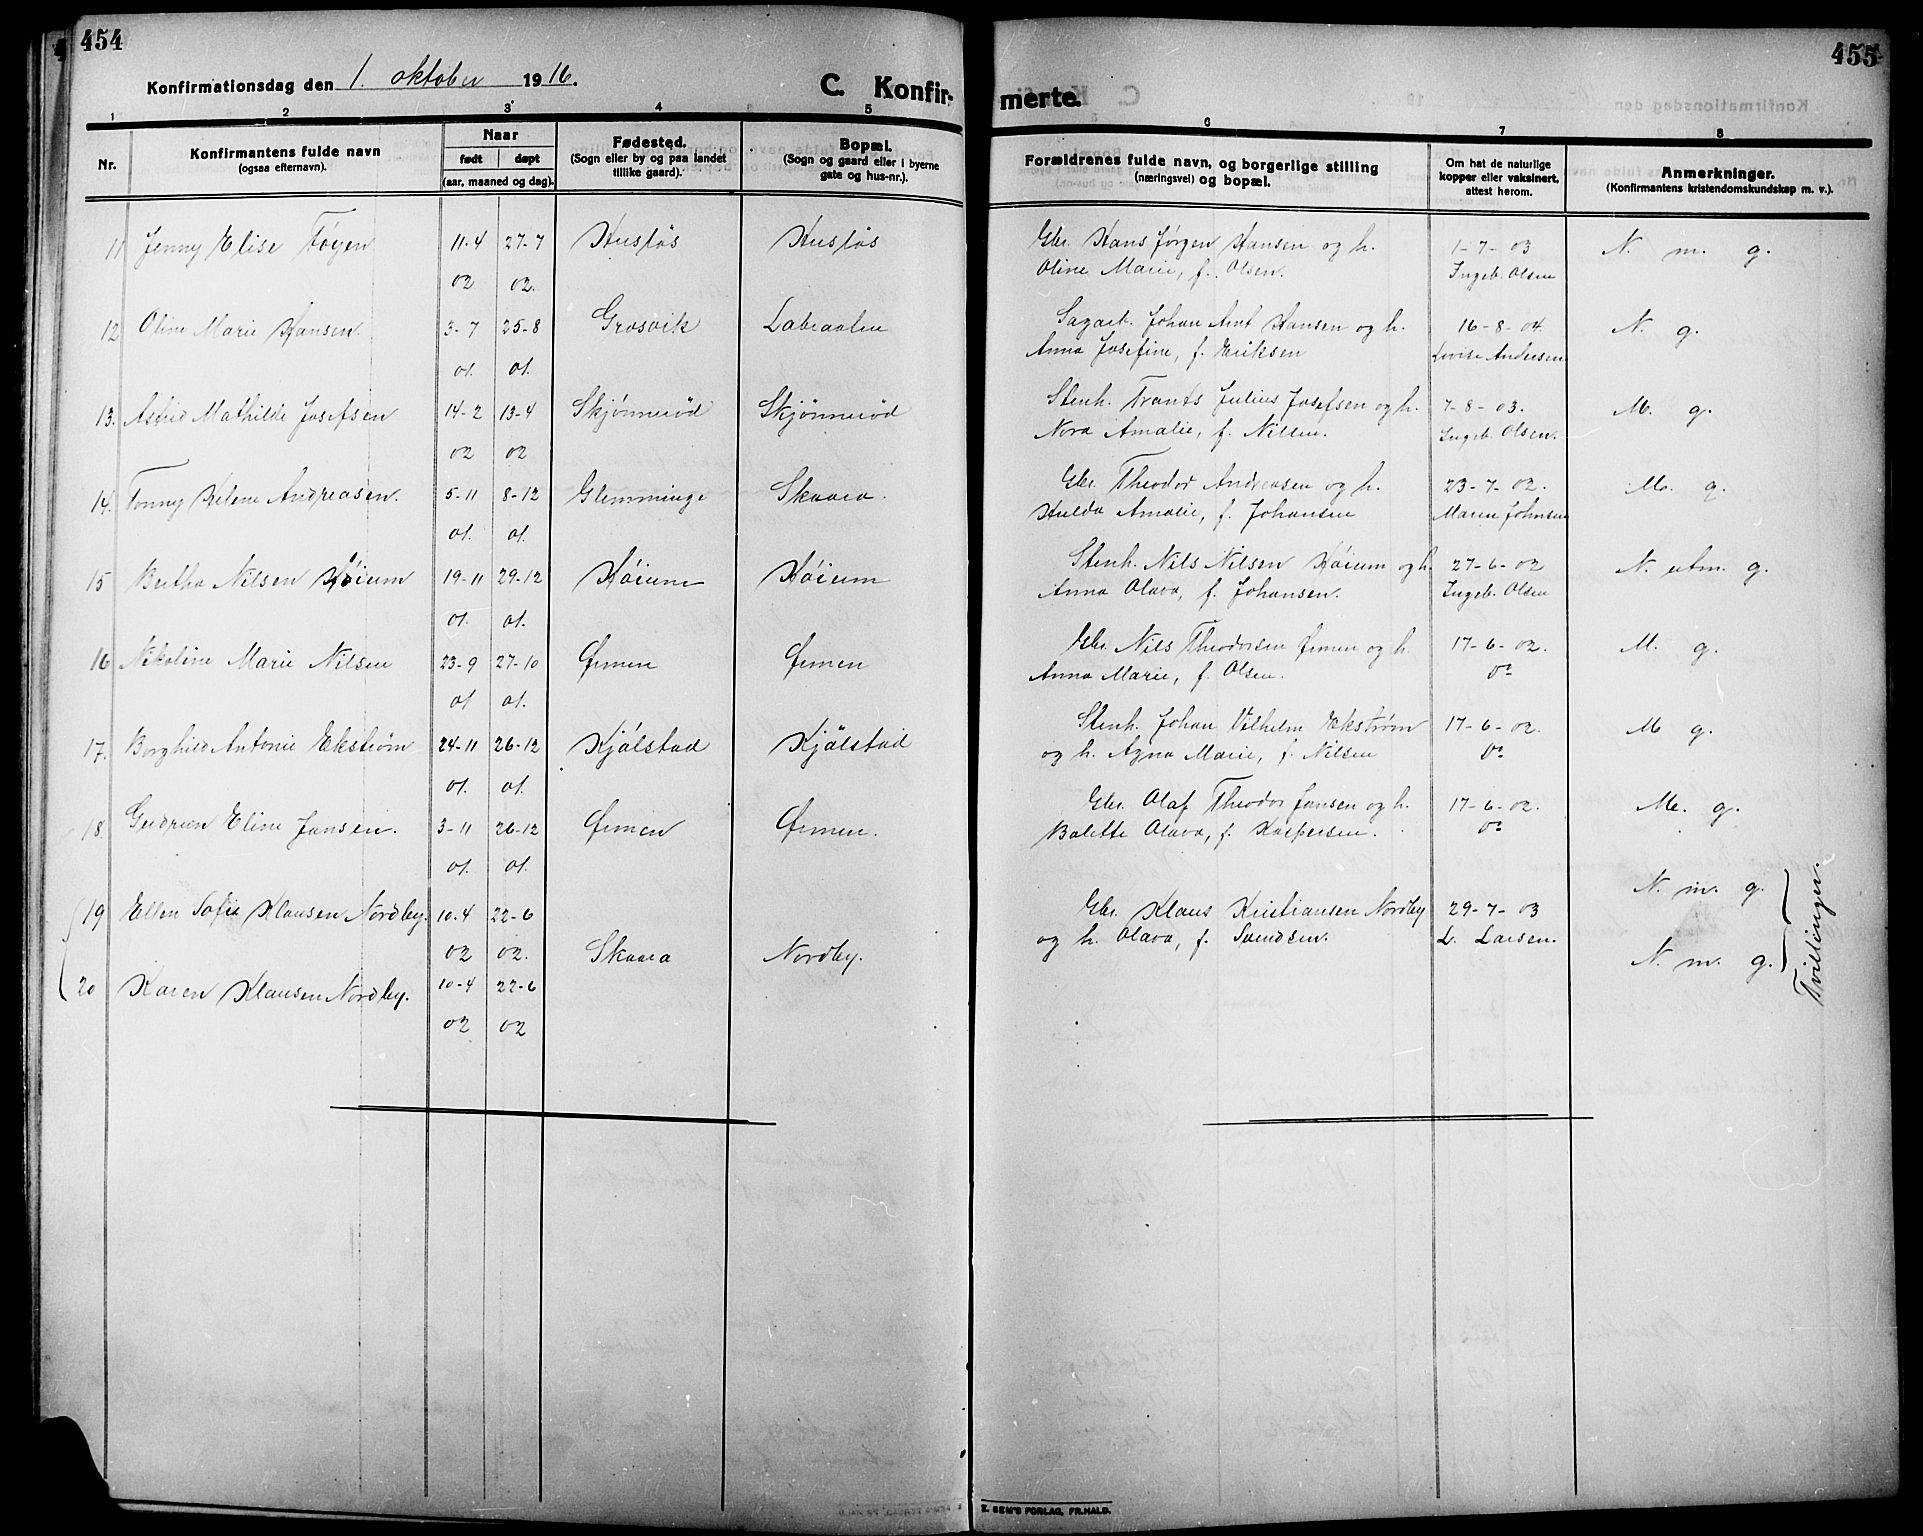 454
455
Konfirmationsdag den 1. oktober 1916.
C. Konfir-
merte.
1 2 3 4 5 6 7 8
Nr.
Konfirmantens fulde navn
(ogsaa efternavn).
Naar
født døpt
(aar, maaned og dag).
Fødested.
(Sogn eller by og paa landet
tillike gaard).
Bopæl.
(Sogn og gaard eller i byerne
gate og hus-nr.).
Forældrenes fulde navn, og borgerlige stilling
(næringsvei) og bopæl.
Om hat de naturlige
kopper eller vaksinert,
attest herom.
Anmerkninger.
(Konfirmantens kristendomskundskap m. v.).
11 Jenny Elise Føyen 11-4 27-7 Husløs Husløs Gbr. Hans Jørgen Hansen og h. 1-7-03 N. m. g.
02 02. Oline Marie, f. Olsen. Ingeb. Olsen
12 Oline Marie Hansen. 3-7 25-8 Gresvik Labraaten Sagarb. Johan Arnt Hansen og h. 16-8-04. N. g.
01. 01. Anna Josefine, f. Eriksen Lovise Andersen
13. Astrid Mathilde Josefsen 14-2 13-4 Skjønnerød Skjønnerød Stenh. Frants Julius Josefsen og h. 7-8-03. M. g.
02 02 Nora Amalie, f. Nilsen. Ingeb. Olsen.
14. Fonny Helene Andreasen. 5-11 8-12 Glemminge Skaara. Gbr. Theodor Andreasen og h. 23-7-02. M. g.
01. 01. Hulda Amalie, f. Johansen Maren Johnsen
15 Bertha Nilsen Høium 19-11 29-12 Høium Høium Stenh. Nils Nilsen Høium og h. 27-6-02 N. utm. g.
01. 01. Anna Olava, f. Johansen. Ingeb. Olsen
16 Nikoline Marie Nilsen 23-9 27-10 Ørmen Ørmen Gbr. Nils Theodorsen Ørmen og h. 17-6-02. M. g.
01 01. Anna Marie, f. Olsen. do
17. Borghild Antonie Ekstrøm 24-11 26-12 Kjølstad Kjølstad Stenh. Johan Vilhelm Ekstrøm 17-6-02. M g.
01. 01. og h. Agna Marie, f. Nilsen do
18. Gudrun Eline Jansen. 3-11 26-12 Ørmen Ørmen. Gbr. Olaf Theodor Jansen og h. 17-6-02. M. g.
01. 01. Balette Olava, f. Kaspersen. do
19 Ellen Sofie Klausen Nordby. 10-4 22-6 Gbr. Klaus Kristiansen Nordby 29-7-03 N. m. g.
02 02. Skaara Nordby. og h. Olava, f. Svendsen. L. Larsen.
20 Karen Klausen Nordby. 10-4 22-6 N. m. g.
02 02
Tvillinger.
E. SEM'S FORLAG, FR.HALD.